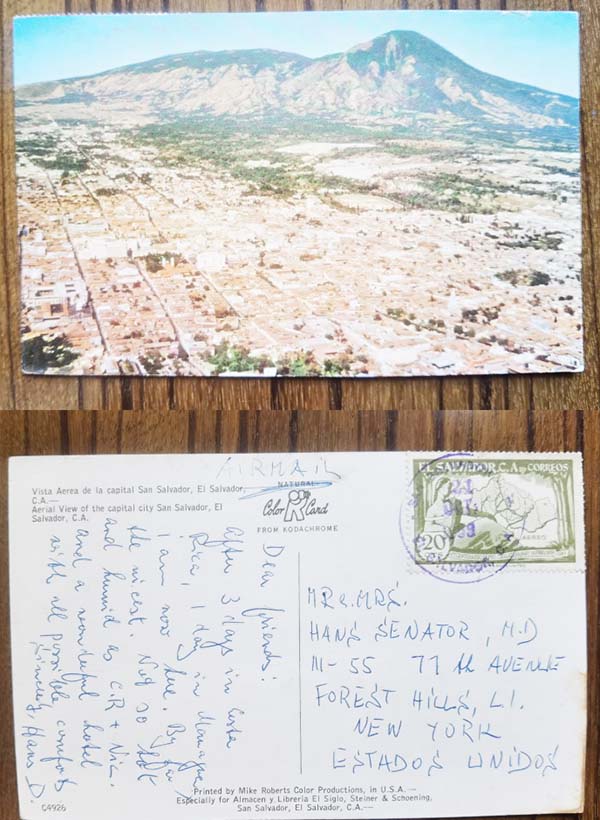 AIRMAIL
Vista Aerea de la capital San Salvador, El Salvador,
C.A.—
Aerial View of the capital city San Salvador, El
Salvador, C.A.
NATURAL
Color Card
FROM KODACHROME
EL SALVADOR, C.A. CORREOS
AEREO
¢20
SALVADOR
Dear friends!
After 3 days in Costa
Rica, 1 day in Managua
I am now here. By far
the nicest. Not so hot
and humid as C.R + Nic.
and a wonderful hotel
with all possible comforts
Sincerely, Hans D.
MR & MRS.
HANS SENATOR, M.D
111-55 77 th AVENUE
FOREST HILLS, L.I.
NEW YORK
ESTADOS UNIDOS
Printed by Mike Roberts Color Productions, in U.S.A.—
Especially for Almacen y Libreria El Siglo, Steiner & Schoening,
San Salvador, El Salvador, C.A.—
C4926